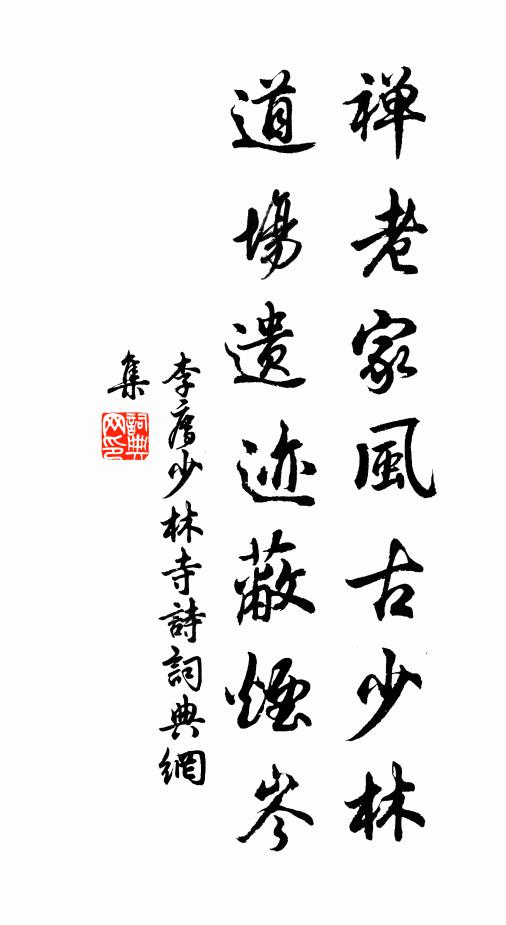 禅老家風古少林
道場遺迹蔽煙岑
李廌少林寺詩詞典網
集
詞典網印